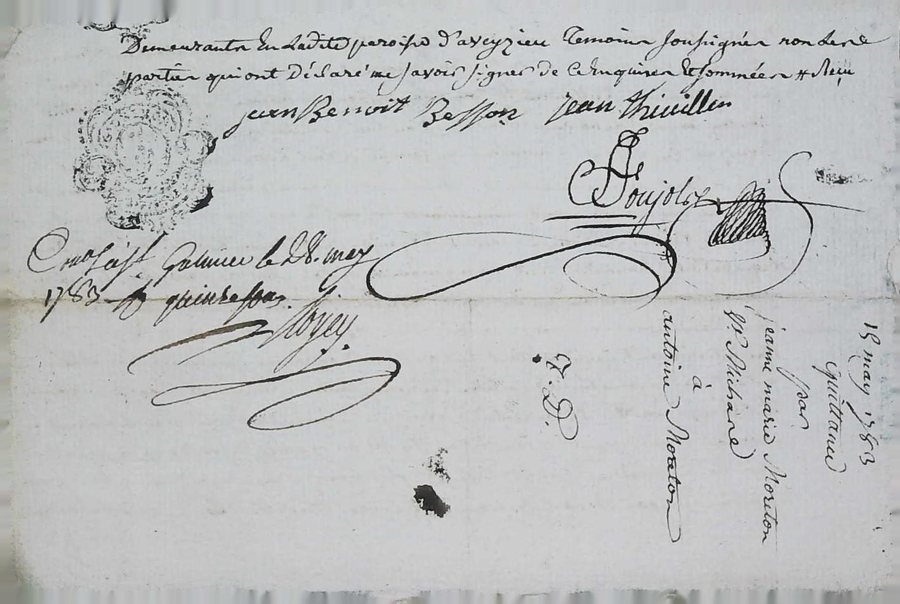 Demeurants En Ladite paroisse d'aveyzieu Temoins Soussignés non Les
parties qui ont Déclaré ne savoir signer de ce Enquises Et sommées #
jean Benoit Besson jean thivillier
Soujols
Galmier le 28. may
1783 quinze sous
15 may 1783
Quittance
par
jeanne marie Moreton
Ve. Michard
à
antoine Moreton
E. D.